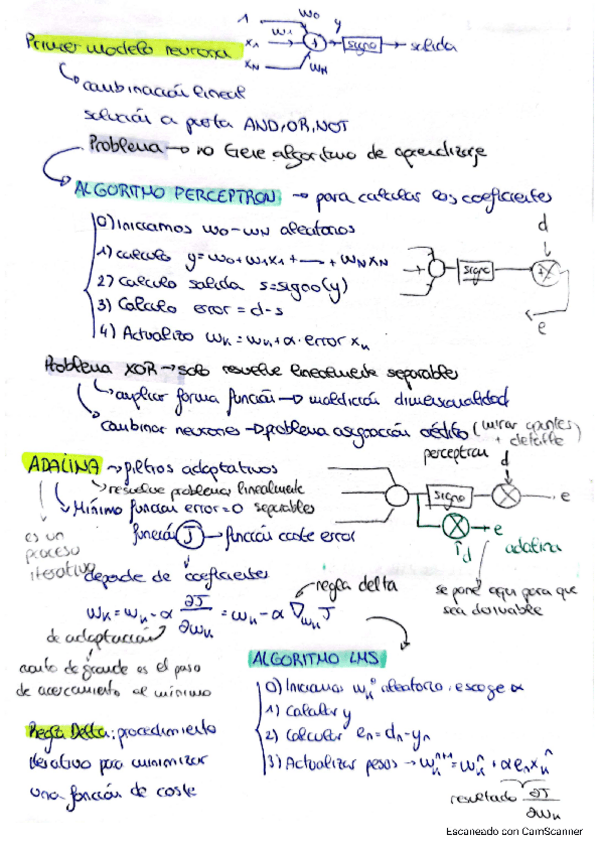 1 w0 y
Primer modelo neurona x1 w1 + signo → salida
xN wN
combinación lineal
solución a puerta AND, OR, NOT
Problema → no tiene algoritmo de aprendizaje
ALGORITMO PERCEPTRON → para calcular los coeficientes
0) Iniciamos w0-wN aleatorios
d
1) calculo y = w0 + w1x1 + — + wNxN
2) Calculo salida s = signo(y) signo
3) Calculo error = d - s
e
4) Actualizo wk = wk + α · error xk
Problema XOR → solo resuelve linealmente separables
ampliar forma función → maldición dimensionalidad
combinar neuronas → problema asignación crédito (mirar apuntes + detalle)
perceptron d
ADALINA → filtros adaptativos
signo e
resuelve problemas linealmente separables
Mínimo función error = 0
e
función J → función coste error
d adalina
es un proceso iterativo
depende de coeficientes
se pone aqui para que sea derivable
regla delta
wk = wk - α ∂J/∂wk = wk - α ∇wk J
de adaptación
cuanto de grande es el paso
de acercamiento al mínimo
ALGORITMO LMS
0) Iniciamos wk⁰ aleatorio, escoge α
1) Calcular y
2) Calcular en = dn - yn
3) Actualizar pesos → wkⁿ⁺¹ = wkⁿ + α en xkⁿ
resultado ∂J/∂wk
Regla Delta: procedimiento
iterativo para minimizar
una función de coste
Escaneado con CamScanner